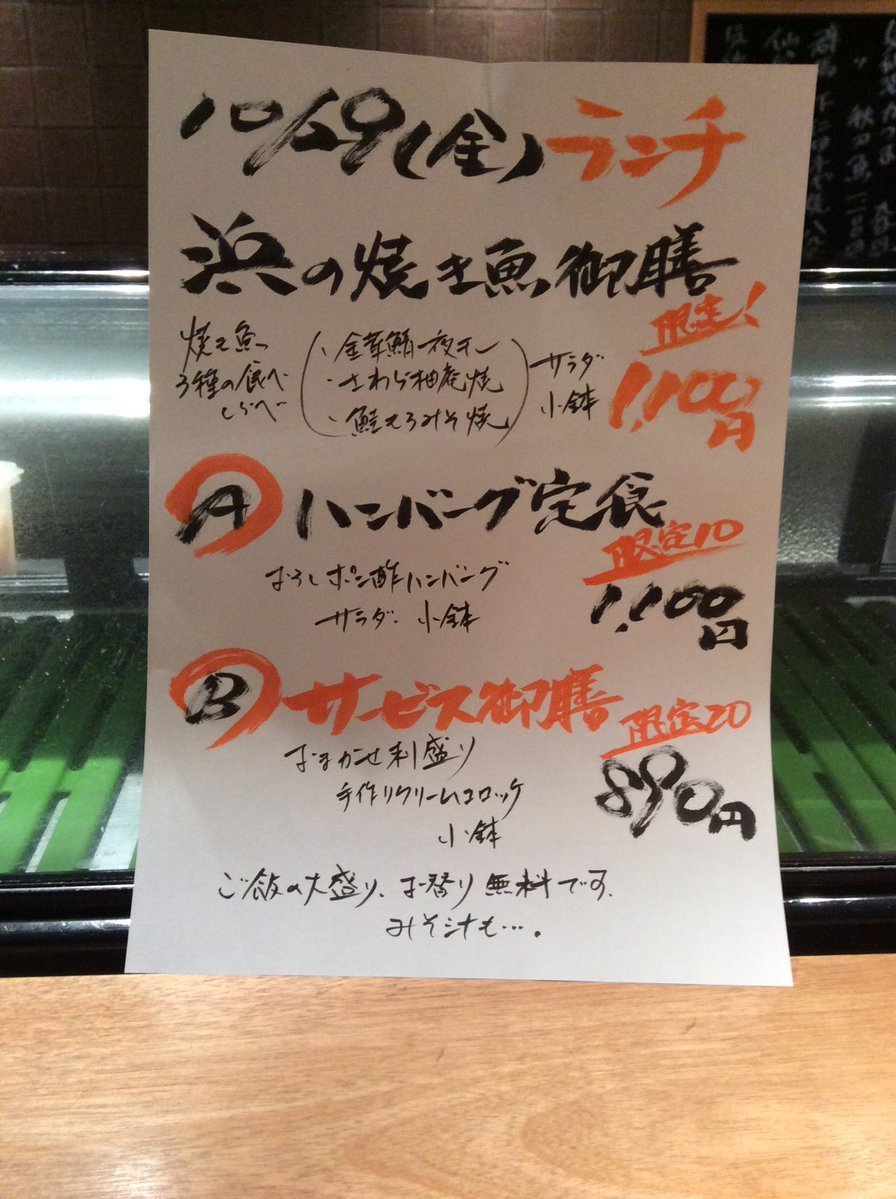 10/29(金)ランチ
浜の焼き魚御膳
限定!
1,100円
焼き魚
3種の食べ
くらべ
・金華鯖一夜干し
・さわら柚庵焼
・鮭もろみそ焼
サラダ
小鉢
A ハンバーグ定食
限定10
1,100円
おろしポン酢ハンバーグ
サラダ、小鉢
B サービス御膳
限定20
890円
おまかせ刺盛り
手作りクリームコロッケ
小鉢
ご飯の大盛り、お替り無料です、
みそ汁も…。